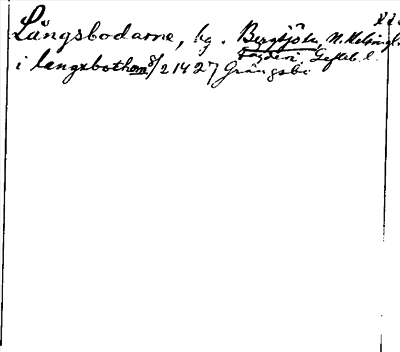 Långsbodarne, by. Bergsjö sn, N. Helsingl.
Gefleb. l.
i langxbothom 8/2 1427 Grängsbo